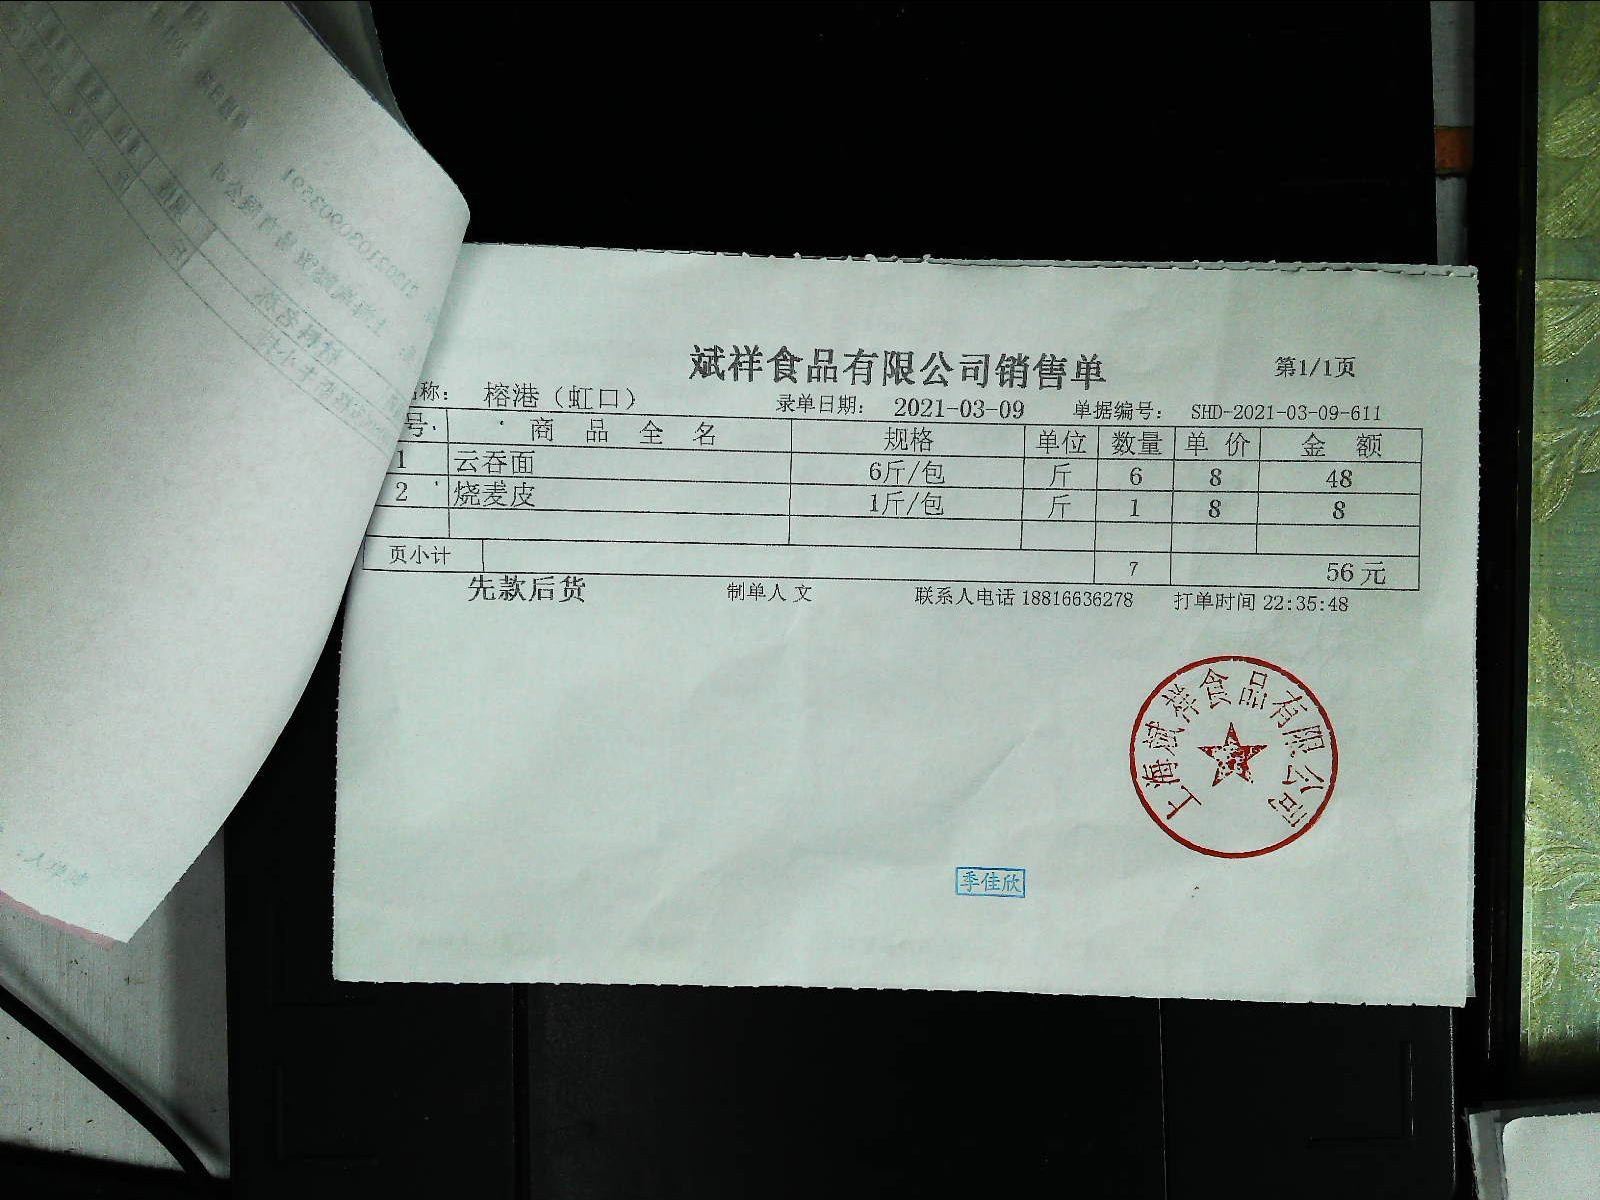 斌祥食品有限公司销售单
第1/1页
称： 榕港（虹口） 录单日期： 2021-03-09 单据编号： SHD-2021-03-09-611
号 商品全名 规格 单位 数量 单价 金额
1 云吞面 6斤/包 斤 6 8 48
2 烧麦皮 1斤/包 斤 1 8 8
页小计 7 56元
先款后货 制单人 文 联系人电话 18816636278 打单时间 22:35:48
上海斌祥食品有限公司
季佳欣